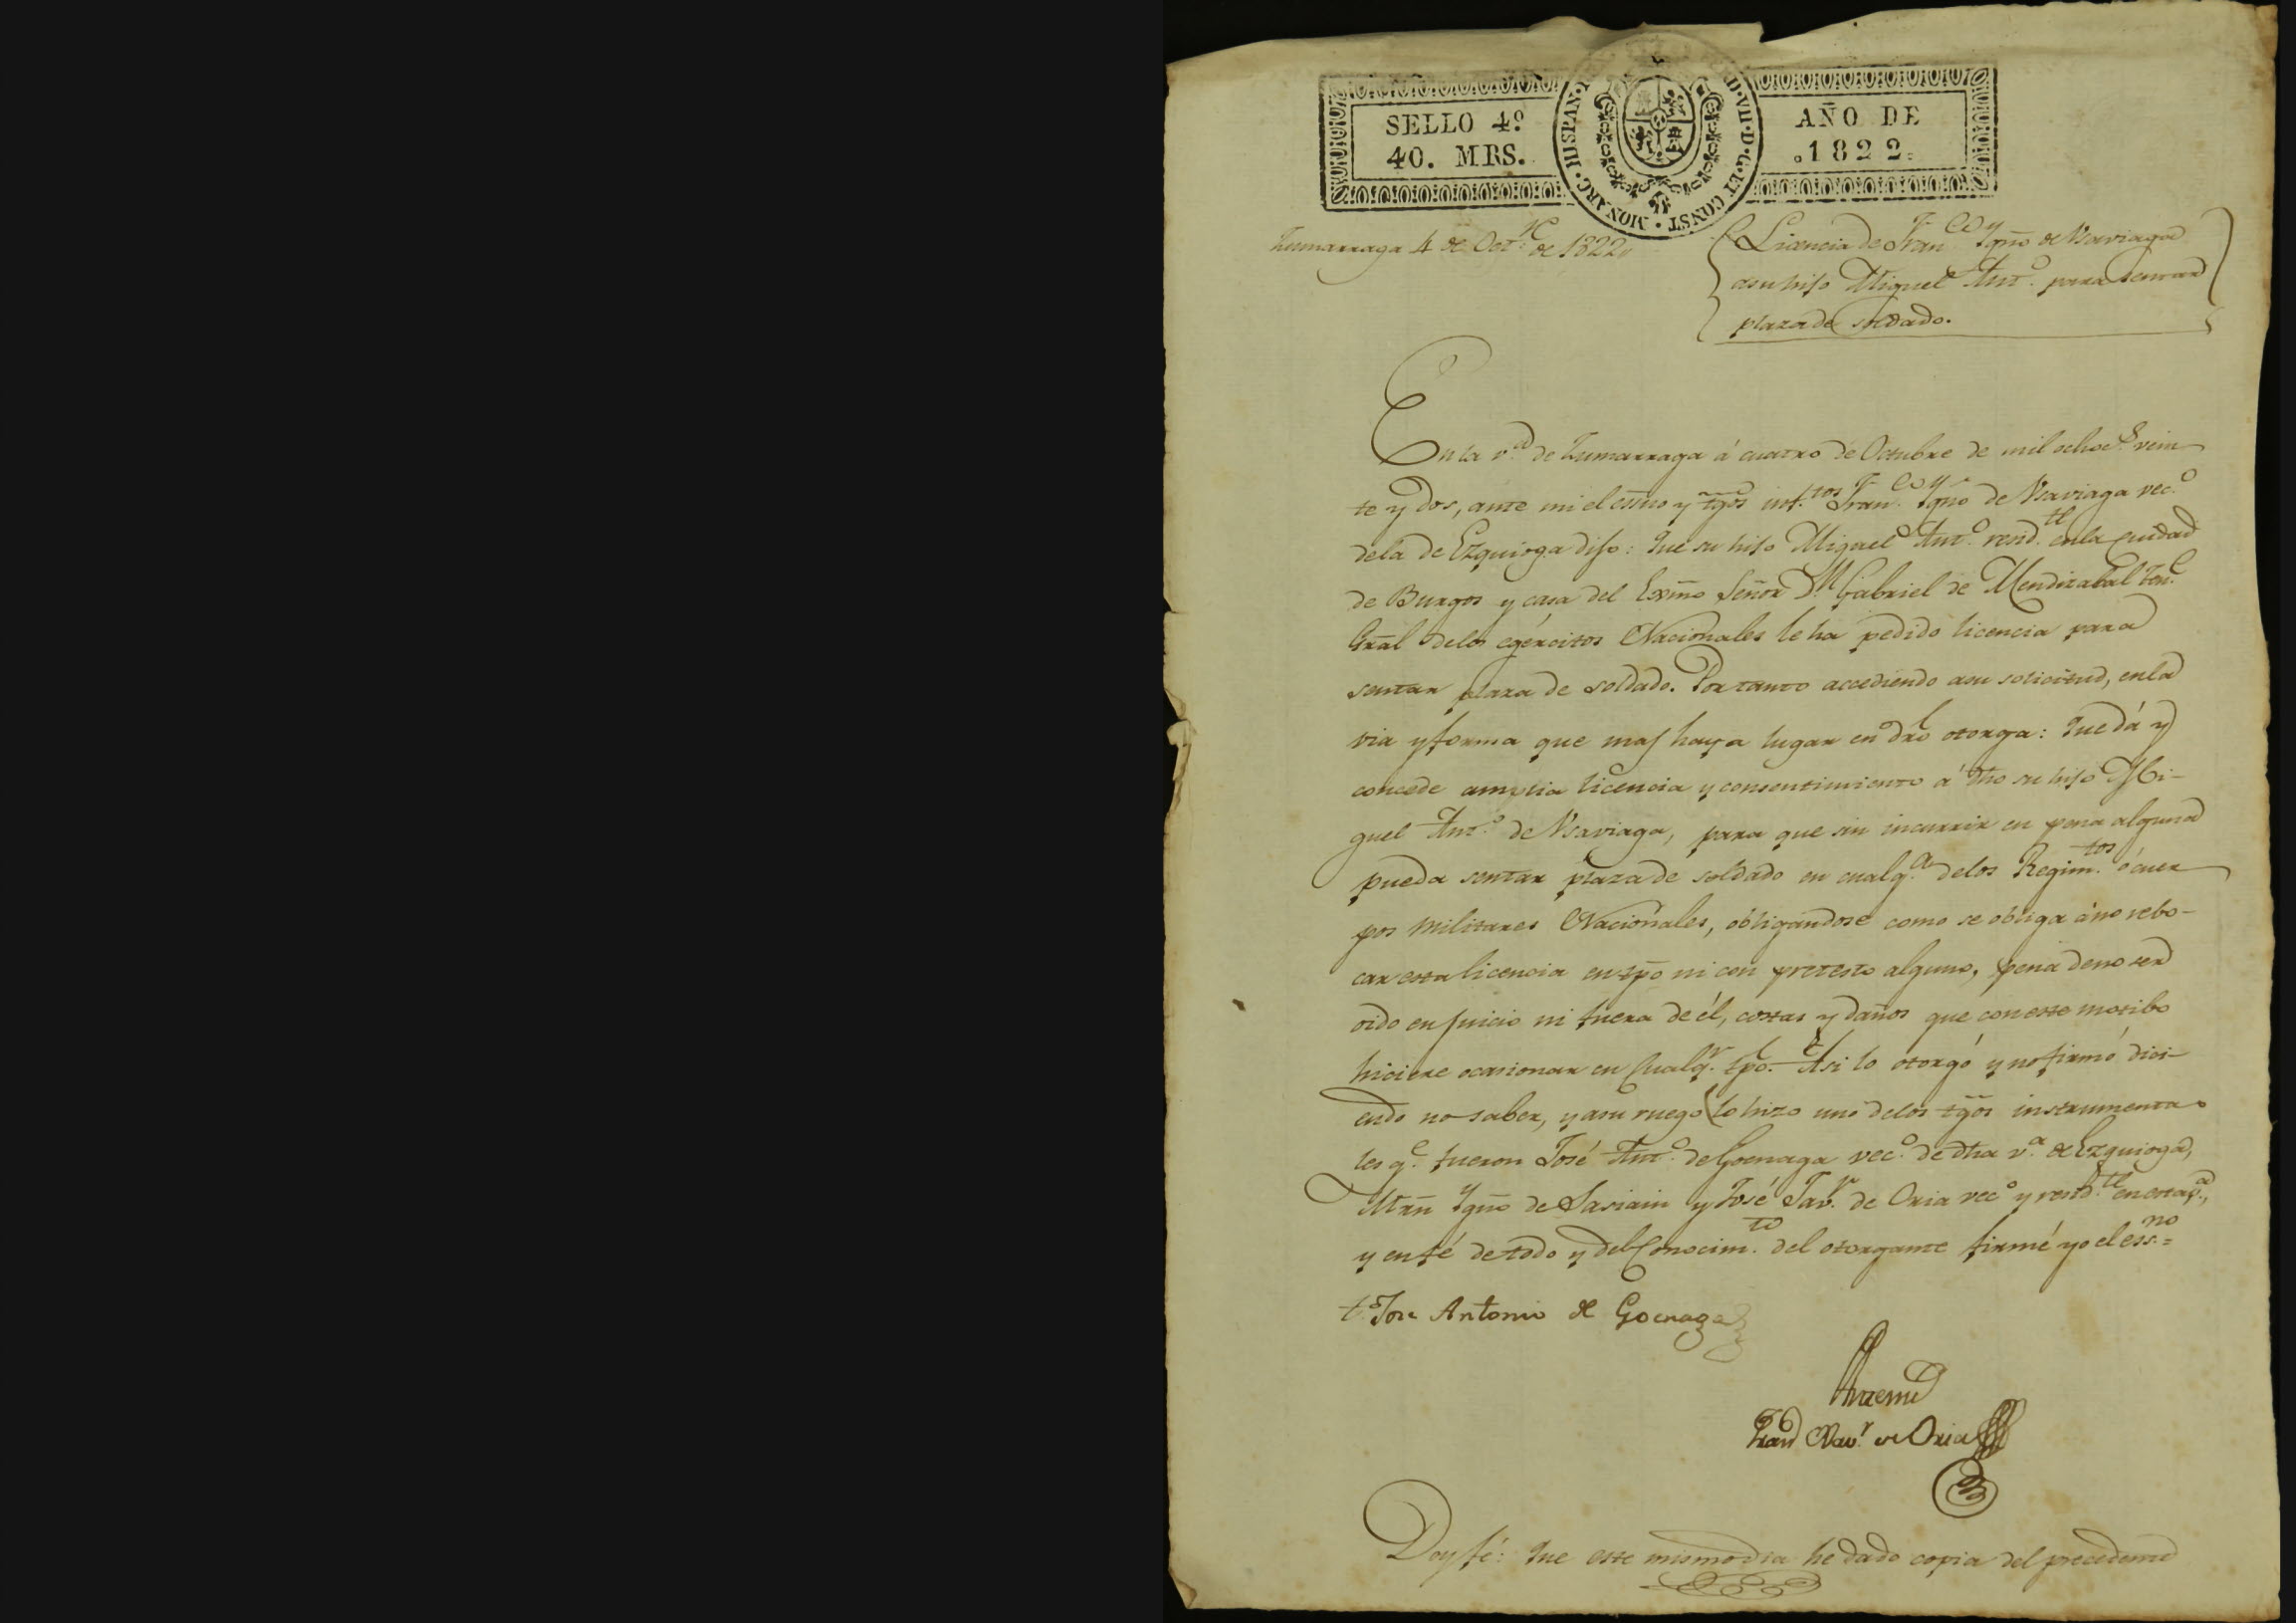 SELLO 4º
40. MRS.
AÑO DE
1822.
HISPAN. VII. D. G. ET CONST. MONARC.
Zumarraga 4 de Octre de 1822
Licencia de Franco Ygno de Ysaviaga
a su hijo Miguel Anto para sentar
plaza de soldado.
En la va de Zumarraga á cuatro de Octubre de mil ochocs vein
te y dos, ante mi el esno y tgos inftos Franco Ygno de Ysaviaga veco
dela de Ezquioga dijo: Que su hijo Miguel Anto resid.te en la ciudad
de Burgos y casa del Exmo Señor Dn Gabriel de Mendizabal Ten.e
Gral delos egércitos Nacionales le ha pedido licencia para
sentar plaza de soldado. Por tanto accediendo a su solicitud, en la
via y forma que mas haya lugar en dro otorga: Que dá y
concede amplia licencia y consentimiento á dho su hijo Mi-
guel Anto de Ysaviaga, para que sin incurrir en pena alguna
pueda sentar plaza de soldado en cualq.a delos Regim.tos ó cuer
pos militares Nacionales, obligandose como se obliga á no rebo-
car esta licencia en tpo ni con pretesto alguno, pena de no ser
oido en juicio ni fuera de él, costas y daños que con este motibo
hiciere ocasionar en cualq.r tpo. Asi lo otorgó y no firmó dici-
endo no saber, y a su ruego lo hizo uno delos tgos instrumenta
les q.e fueron José Anto de Goenaga veco de dha va de Ezquioga,
Mrn Ygno de Sasiain y José Jav.r de Oria veco y resid.te en esta va,
y en fé de todo y del conocim.to del otorgante firmé yo el ess.no =
to Jose Antonio de Goenaga
Ante mi
Franco Xav.r de Oria
Doy fé: Que este mismo dia he dado copia del precedente